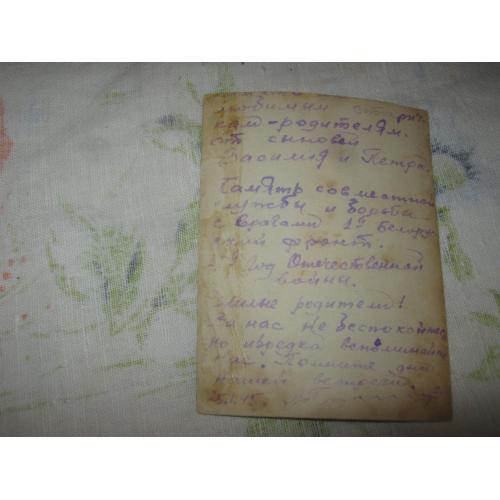 любимым
кам-родителям.
от сыновей
Василия и Петра.
Памятр совместной
службы и борьбы
с врагами 1й Белору
ский фронт.
год Отечественной
войны.
Милые родители!
За нас не беспокойтесь
но изредка вспоминайте
нас. Помните дни
нашей